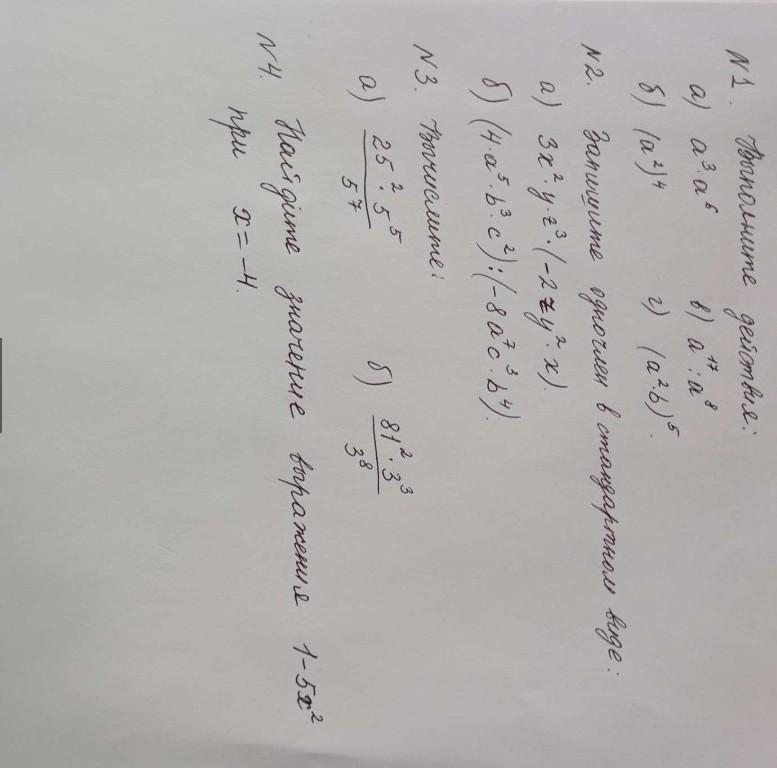 N1. Выполните действия:
а) a³·a⁶ в) a¹⁷:a⁸
б) (a²)⁴ г) (a²b)⁵.
N2. Запишите одночлен в стандартном виде:
а) 3x²·y·z³·(-2zy²·x)
б) (4·a⁵·b³·c²):(-8a⁷c³·b⁴).
N3. Вычислите:
а) 25²·5⁵/5⁷ б) 81²·3³/3⁸
N4. Найдите значение выражения 1-5x²
при x=-4.